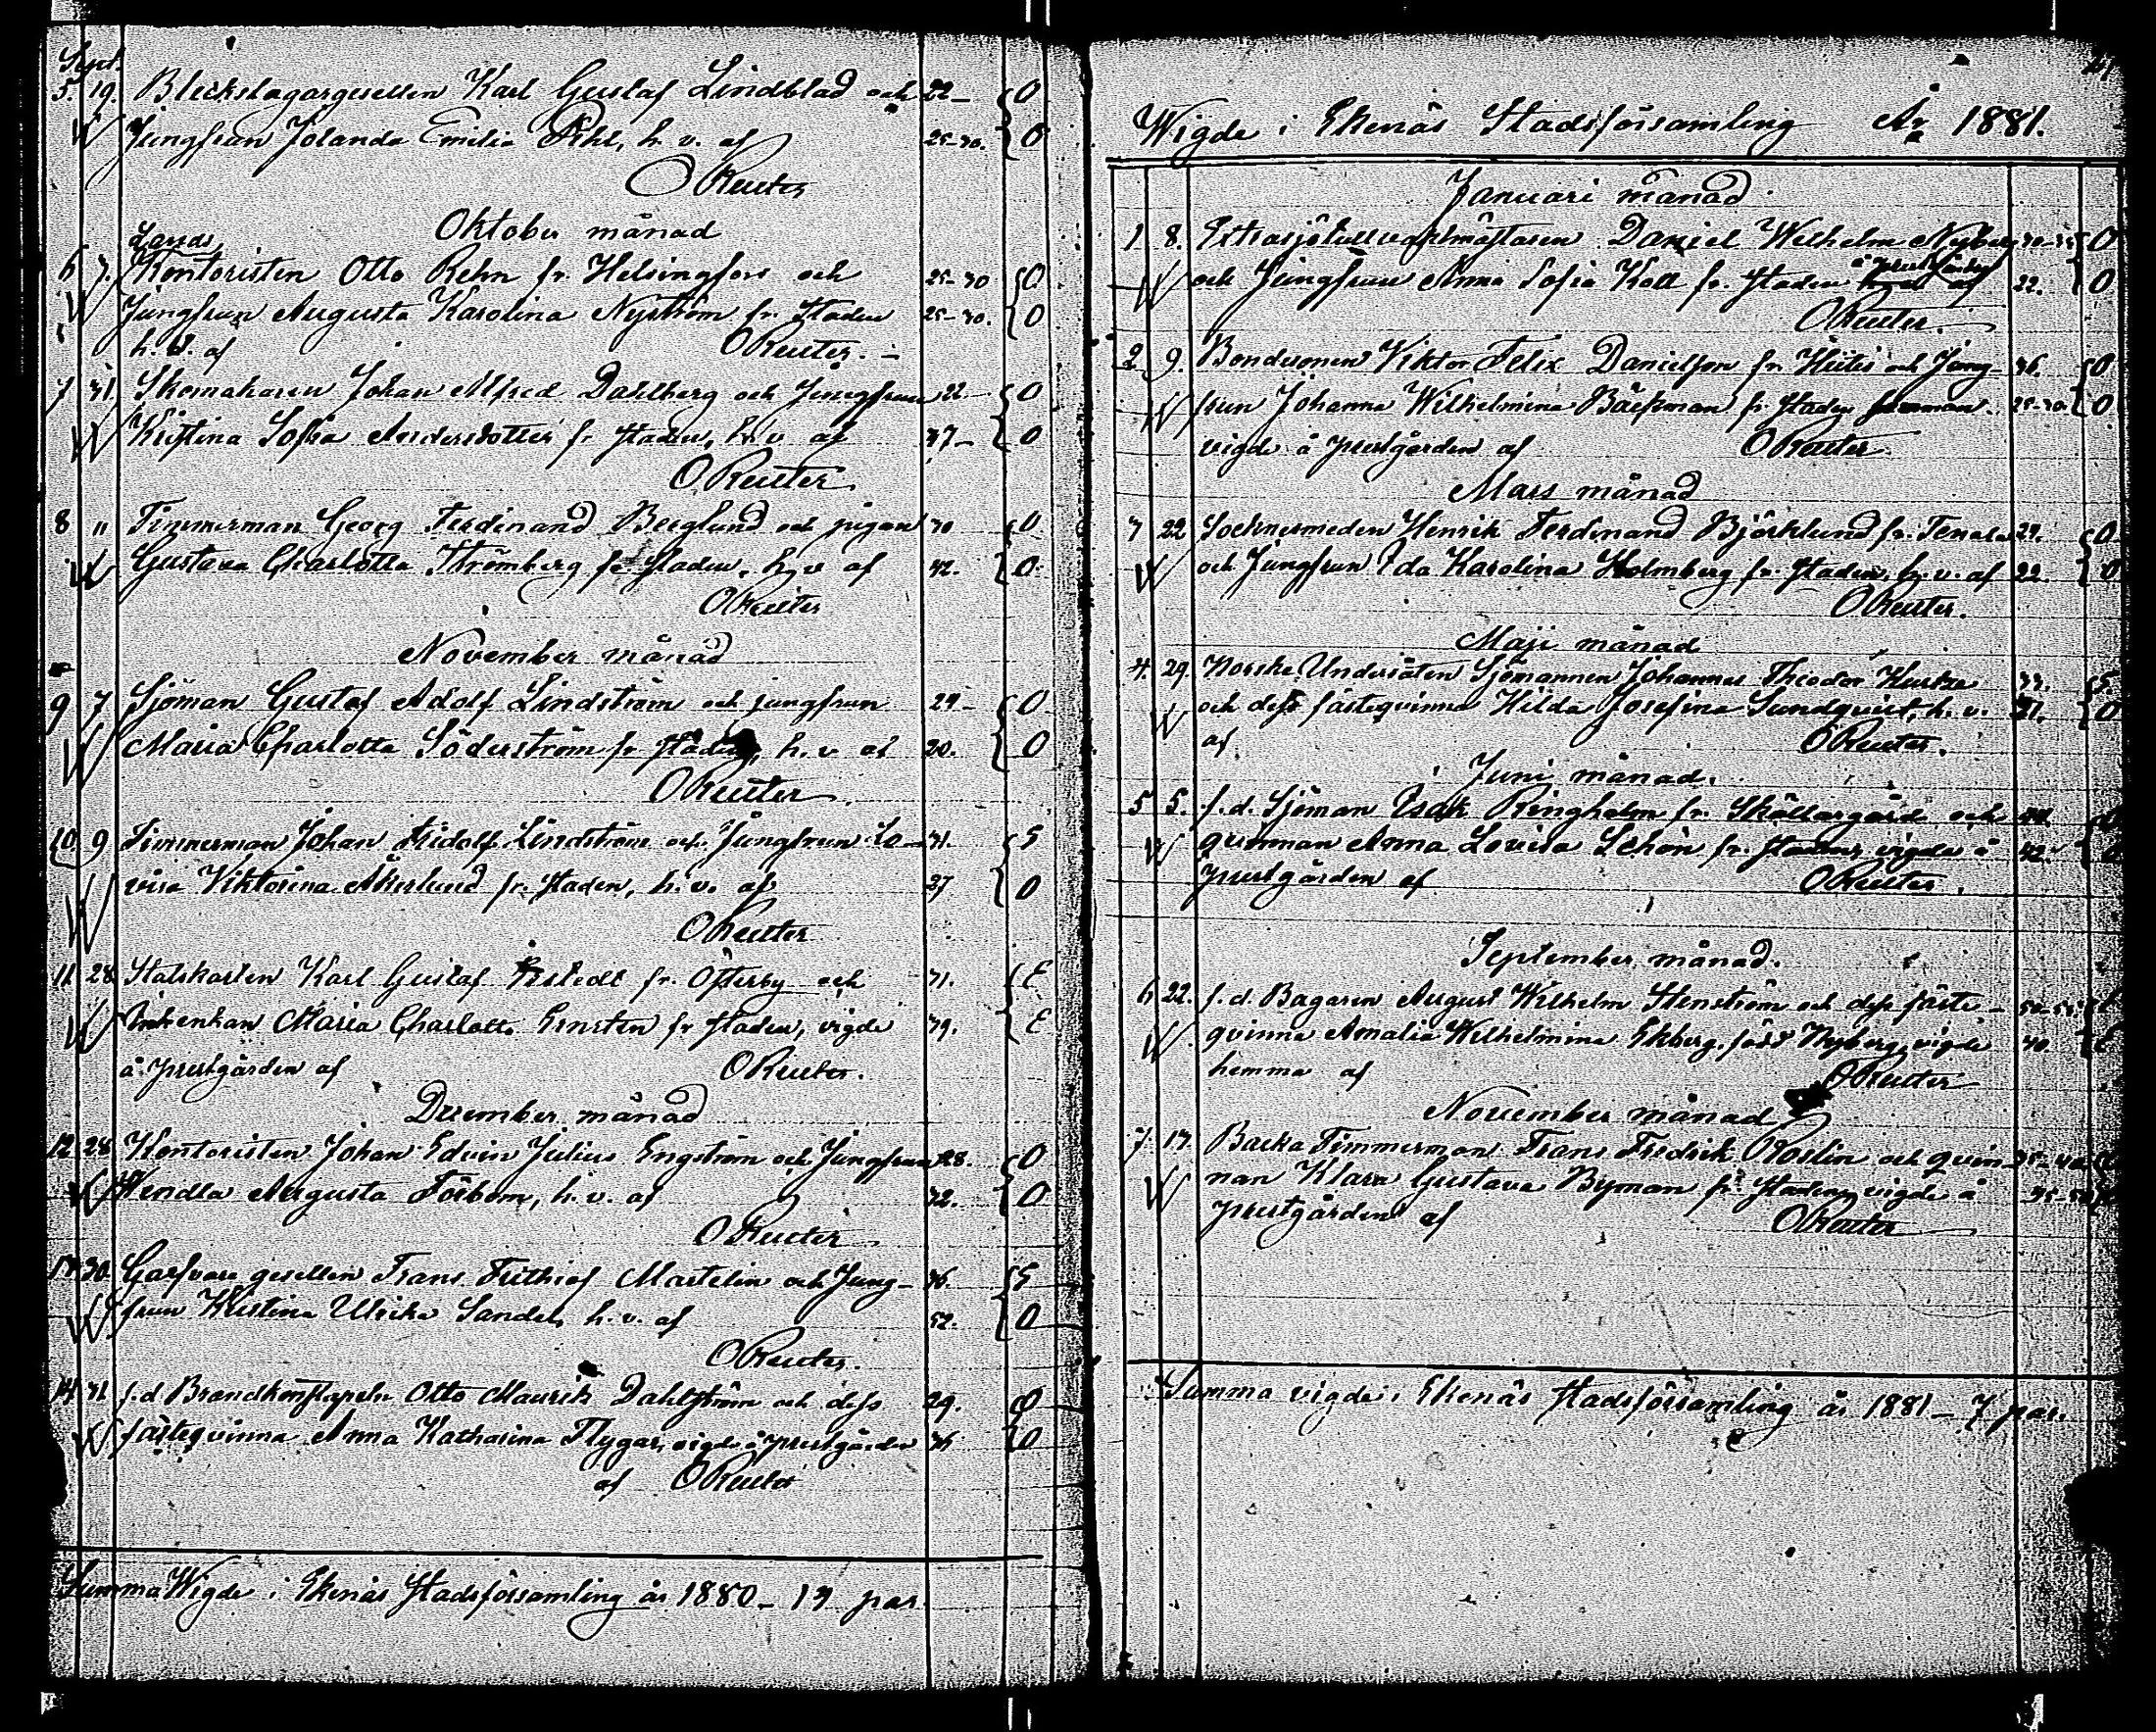 Sept.
5. 19. Bleckslagargesellen Karl Gustaf Lindblad och 22 – O
Jungfrun Jolanda Emilia Pihl, h. v. af 25–30. O
O Reuter
Oktober månad
Lands
6 3. Kontoristen Otto Rehn fr. Helsingfors och 25–30 O
Jungfrun Augusta Karolina Nyström fr. staden 25–30. O
h. v. af O Reuter. –
7 31. Skomakaren Johan Alfred Dahlberg och Jungfrun 22 – O
Kristina Sofia Andersdotter fr staden, h. v. af 37 – O
O Reuter
8 " Timmerman Georg Ferdinand Berglund och pigan 30 O
Gustava Charlotta Strömberg fr staden, h. v af 42. O
O Reuter
November månad
9 7 Sjöman Gustaf Adolf Lindström och jungfrun 24 – O
Maria Charlotta Söderström fr staden, h. v af 20. O
O Reuter
10 9 Timmerman Johan Lindström och Jungfrun Lo– 31. S
visa Viktorina Åkerlund fr. staden, h. v. af 27 O
O Reuter
11 28 Statskarlen Karl Gustaf fr. Österby och 31. E
Enkan Maria Charlotta fr staden, vigde 39. E
å prestgården af O Reuter.
December månad
12 28 Kontoristen Johan Edvin Julius Engström och Jungfrun 28. O
Wendla Augusta Forbom, h. v. af 32. O
O Reuter
13 30. Garfvare gesellen Frans Frithiof Martelin och Jung– 36. S
frun Kristina Ulrika Sandel, h. v. af 52. O
O Reuter.
14 31 f. d Brandkonstapeln Otto Maurits Dahlström och dess 29. O
fästeqvinna Anna Katharina Flygar, vigde å prestgården 36 O
af O Reuter
Summa Wigde i Ekenäs Stadsförsamling år 1880 – 14 par.
Wigde i Ekenäs Stadsförsamling År 1881.
Januari månad
1 8. Extrasjötullvaktmästaren Daniel Wilhelm Nyberg 30–35 O
å prestgården
och Jungfrun Anna Sofia Kott fr. staden af 22. O
O Reuter.
2 9. Bondesonen Viktor Felix Danielsson fr. Hitis och Jung– 36. O
frun Johanna Wilhelmina Bäckman fr. staden 25–30. O
vigde å prestgården af O Reuter.
Mars månad
3 22 Sockensmeden Henrik Ferdinand Björklund fr. Tenala 24. O
och Jungfrun Ida Karolina Holmberg fr. staden, h. v. af 22. O
O Reuter.
Maji månad
4. 29. Norske Undersåten Sjömannen Johannes Theodor 33. S.
och dess fästeqvinna Hilda Josefina Sundqvist, h. v. 21. O
af O Reuter.
Juni månad.
5 5. f. d. Sjöman Isak Ringholm fr. Skåldargärd och
qvinnan Anna Lovisa Schön fr. staden, vigde å 42.
prestgården af O Reuter.
September månad.
6 22. f. d. Bagaren August Wilhelm Stenström och dess fäste– 50–55
qvinna Amalia Wilhelmina Ekberg, född Nyberg, vigde 40. E
hemma af O Reuter
November månad
7. 13. Backa Timmerman Frans Fredrik Roslin och qvin– 35–40
nan Klara Gustava Byman fr. staden, vigde å 45–50
prestgården af O Reuter
Summa vigde i Ekenäs Stadsförsamling år 1881 – 7 par.